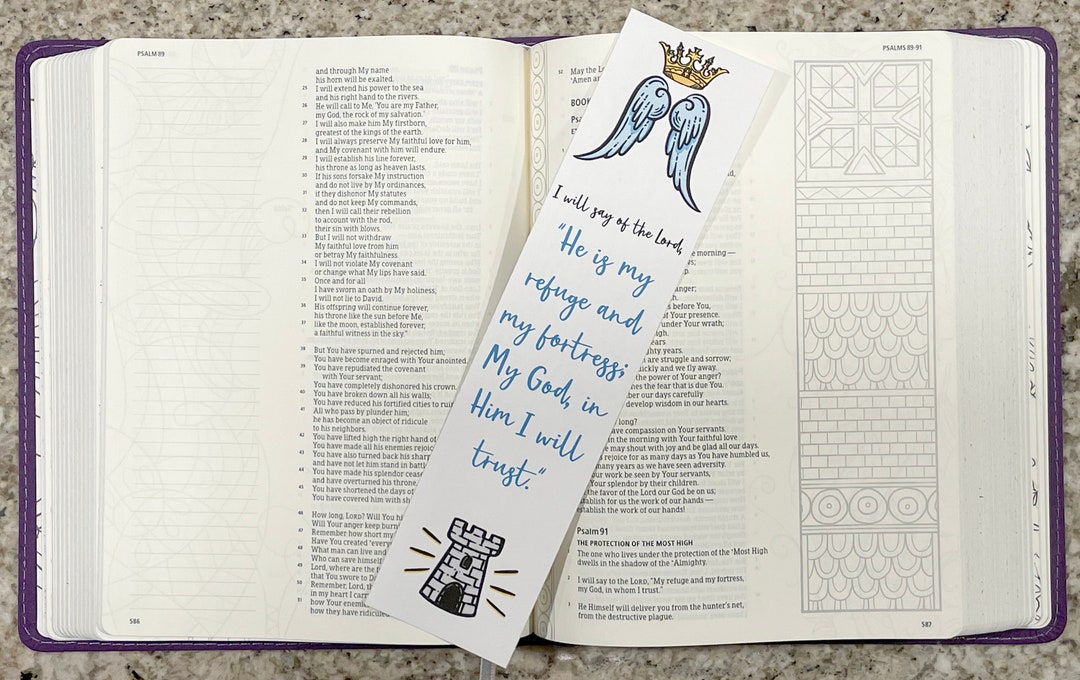 PSALM 89
and through My name
his horn will be exalted.
25 I will extend his power to the sea
and his right hand to the rivers.
26 He will call to Me, 'You are my Father,
my God, the rock of my salvation.'
27 I will also make him My firstborn,
greatest of the kings of the earth.
28 I will always preserve My faithful love for him,
and My covenant with him will endure.
29 I will establish his line forever,
his throne as long as heaven lasts.
30 If his sons forsake My instruction
and do not live by My ordinances,
31 if they dishonor My statutes
and do not keep My commands,
32 then I will call their rebellion
to account with the rod,
their sin with blows.
33 But I will not withdraw
My faithful love from him
or betray My faithfulness.
34 I will not violate My covenant
or change what My lips have said.
35 Once and for all
I have sworn an oath by My holiness;
I will not lie to David.
36 His offspring will continue forever,
his throne like the sun before Me,
37 like the moon, established forever,
a faithful witness in the sky."
38 But You have spurned and rejected him;
You have become enraged with Your anointed.
39 You have repudiated the covenant
with Your servant;
You have completely dishonored his crown.
40 You have broken down all his walls;
You have reduced his fortified cities to
41 All who pass by plunder him;
he has become an object of ridicule
to his neighbors.
42 You have lifted high the right hand of
You have made all his enemies
43 You have also turned back his
and have not let him stand in
44 You have made his splendor
and have overturned his
45 You have shortened the days of
You have covered him with
46 How long, LORD? Will You
Will Your anger keep
47 Remember how short my
Have You created
48 What man can live and
Who can save himself
49 Lord, where are the
that You swore to
50 Remember, Lord,
in my heart I
51 how Your
how they have
586
PSALMS 89-91
52 May the
"Amen
BOOK
I will say of the Lord,
"He is my
refuge and
my fortress;
My God, in
Him I will
trust."
morning —
before You,
of Your presence.
under Your wrath;
years
years.
are struggle and sorrow;
and we fly away.
the power of Your anger?
the fear that is due You.
our days carefully
develop wisdom in our hearts.
long?
compassion on Your servants.
in the morning with Your faithful love
may shout with joy and be glad all our days.
rejoice for as many days as You have humbled us,
many years as we have seen adversity.
work be seen by Your servants,
Your splendor by their children.
the favor of the Lord our God be on us;
for us the work of our hands —
establish the work of our hands!
Psalm 91
THE PROTECTION OF THE MOST HIGH
The one who lives under the protection of the Most High
dwells in the shadow of the Almighty.
2 I will say to the LORD, "My refuge and my fortress,
my God, in whom I trust."
3 He Himself will deliver you from the hunter's net,
from the destructive plague.
587